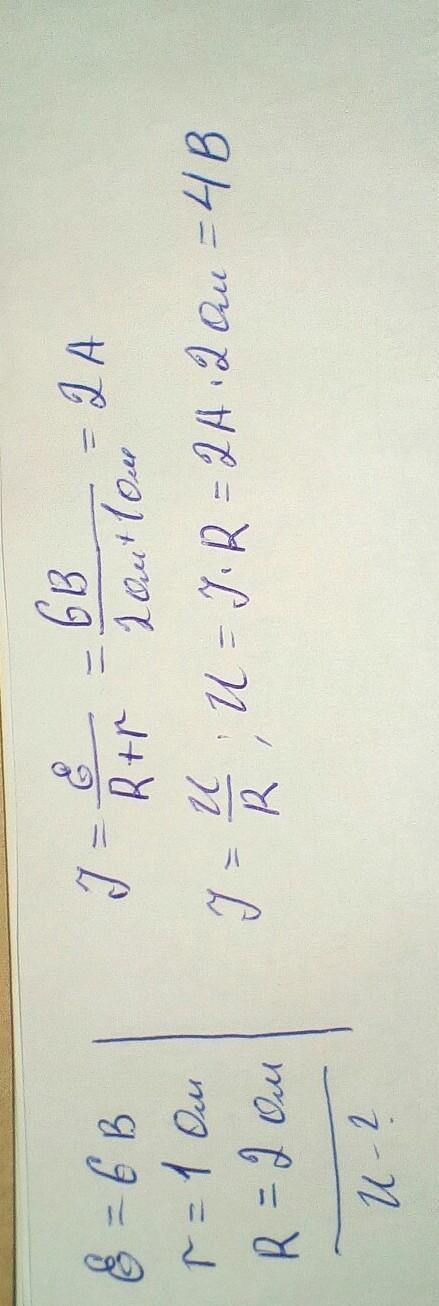 ℰ = 6 В
r = 1 Ом
R = 2 Ом
U - ?
I = ℰ / (R + r) = 6В / (2 Ом + 1 Ом) = 2 А
I = U / R ; U = I · R = 2А · 2 Ом = 4 В